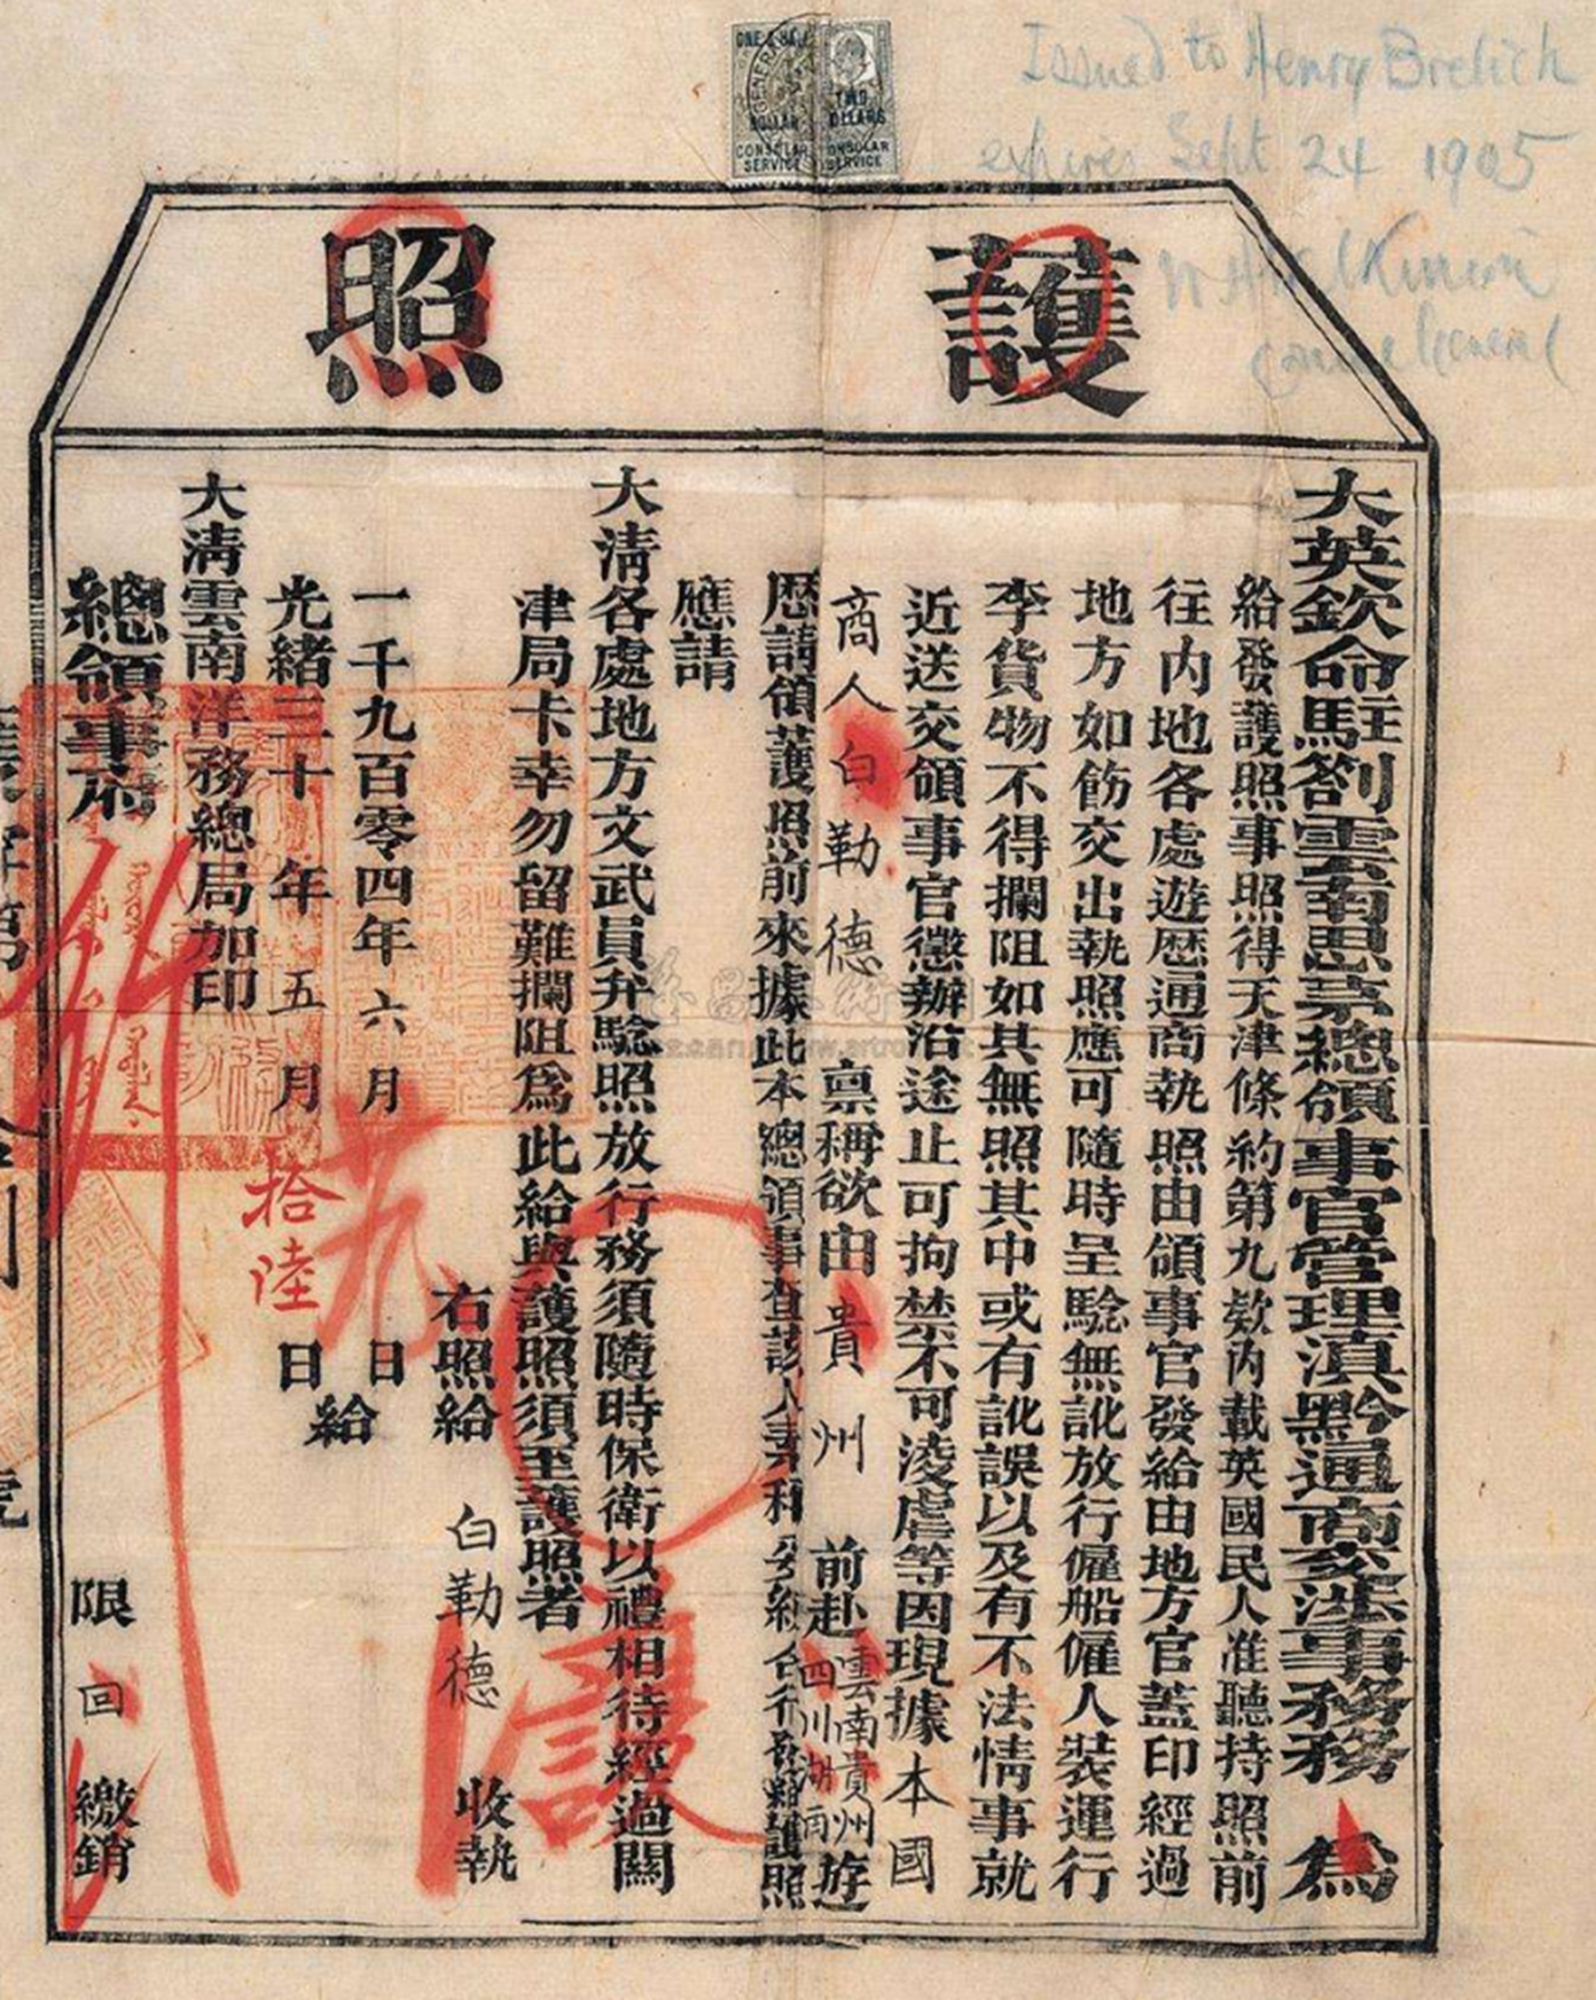 Issued to Henry Brelich
expires Sept 24 1905
Consul General
ONE & HALF DOLLAR CONSULAR SERVICE
TWO DOLLARS CONSULAR SERVICE
護照
大英欽命駐劄雲南思茅總領事官管理滇黔通商交涉事務 為
給發護照事照得天津條約第九欵內載英國民人准聽持照前
往內地各處遊歷通商執照由領事官發給由地方官蓋印經過
地方如飭交出執照應可隨時呈驗無訛放行僱船僱人裝運行
李貨物不得攔阻如其無照其中或有訛誤以及有不法情事就
近送交領事官懲辦沿途止可拘禁不可淩虐等因現據本國
商人白勒德 稟稱欲由貴州前赴雲南貴州四川湖南遊
歷請領護照前來據此本總領事查該人 護照
應請
大清各處地方文武員弁驗照放行務須隨時保衛以禮相待經過關
津局卡幸勿留難攔阻為此給與護照須至護照者
右照給 白勒德 收執
一千九百零四年六月 日
光緒三十年五月拾陸日給
大清雲南洋務總局加印
總領事府 限 回 繳銷
護